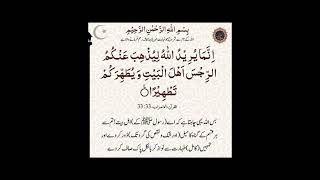 بِسْمِ اللهِ الرَّحْمٰنِ الرَّحِيْمِ
اِنَّمَا يُرِيْدُ اللّٰهُ لِيُذْهِبَ عَنْكُمُ
الرِّجْسَ اَهْلَ الْبَيْتِ وَيُطَهِّرَكُمْ
تَطْهِيْرًا
33:33
بس اللہ یہی چاہتا ہے کہ اے (رسول ﷺ کے) اہل بیت! تم سے
ہر قسم کے گناہ کا میل (اور شک و نقص کی گرد تک) دور کر دے اور
تمہیں (کامل) طہارت سے نواز کر بالکل پاک صاف کر دے